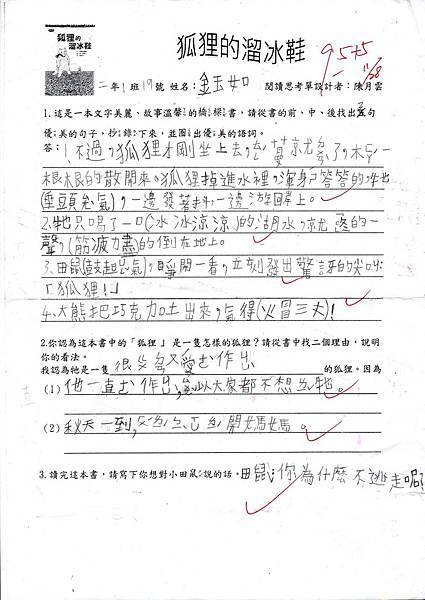 狐狸的
溜冰鞋
狐狸的溜冰鞋
95+5
11/28
二年1班19號 姓名：金玉如 閱讀思考單設計者：陳月雲
1.這是一本文字美麗、故事溫馨的橋樑書，請從書的前、中、後找出5句
優美的句子，抄錄下來，並圈出優美的語詞。
答：1.不過，狐狸才剛坐上去，
根根的散開來。狐狸掉進水裡，渾身ㄕ答答的牠
(垂頭ㄙ氣)，一邊發著抖，一邊游回岸上。
2.牠只喝了一口(冰冰涼涼)的湖水，就 的一
聲，(筋疲力盡)的倒在地上。
3.田鼠(鼓起 氣)，睜開一看，立刻發出驚訝的尖叫
「狐狸！」
4.大熊把巧克力吐出來，氣得(火冒三丈)！
2.你認為這本書中的「狐狸」是一隻怎樣的狐狸？請從書中找二個理由，說明
你的看法。
我認為牠是一隻 的狐狸。因為
(1) 他一直 作 ，所以大家都不想 牠。
(2) 秋天一到， 開始 媽媽。
3.請完這本書，請寫下你想對小田鼠說的話。田鼠：你為什麼不逃走呢？